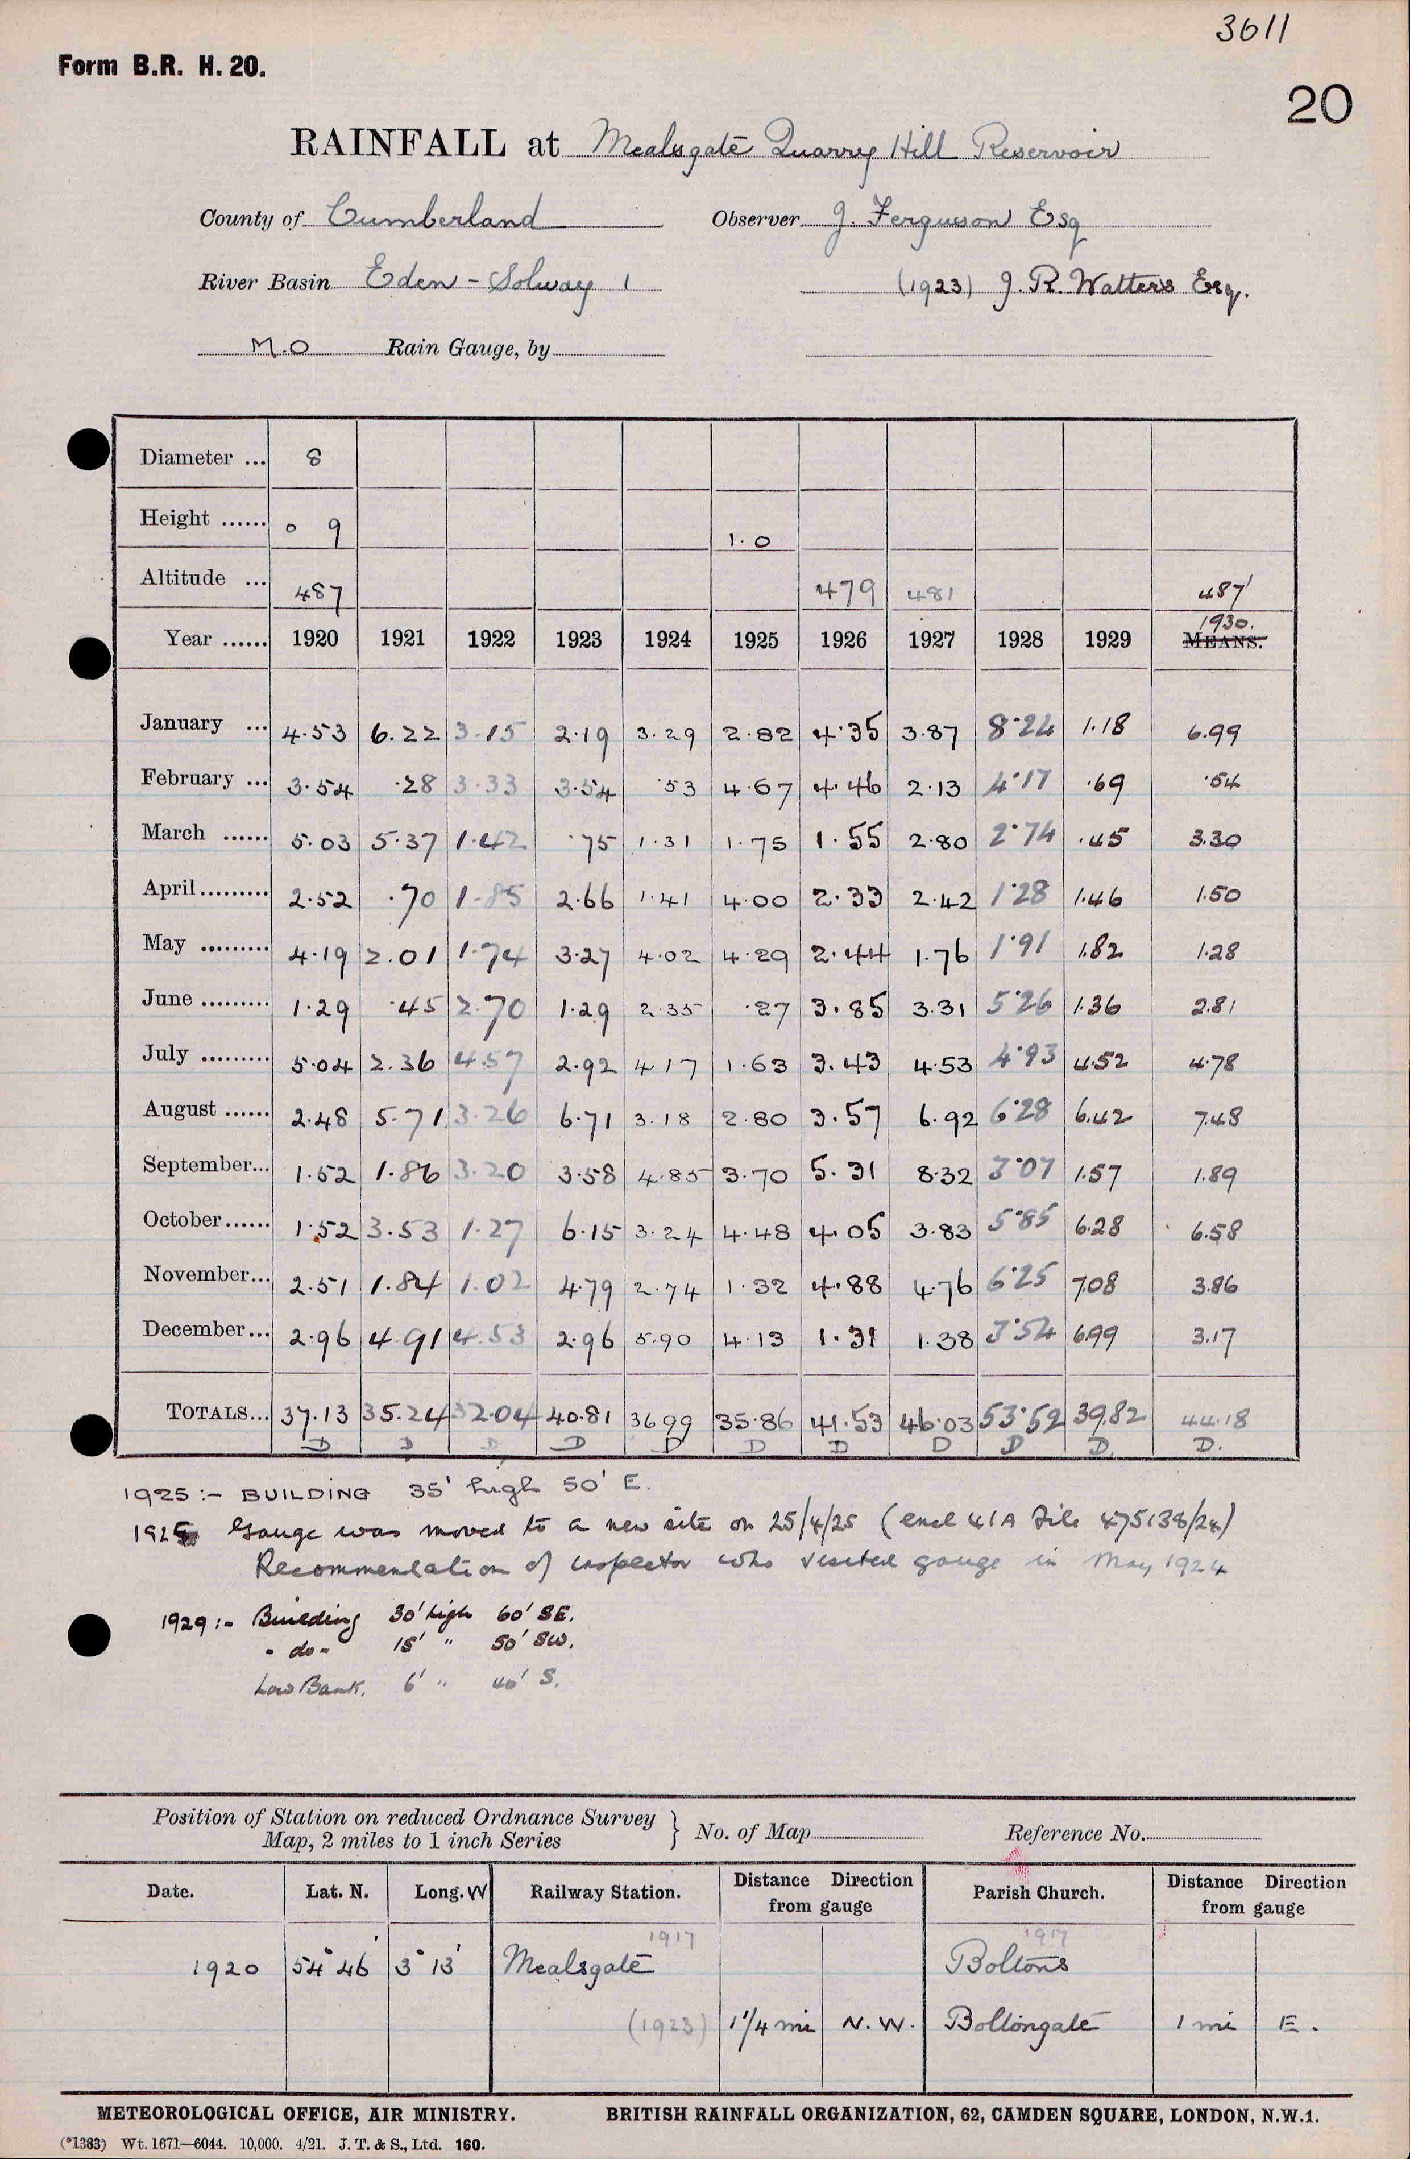 3611
Form B.R. H. 20.
20
RAINFALL at Mealsgate Quarry Hill Reservoir
County of Cumberland Observer J. Ferguson Esq
River Basin Eden - Solway 1 (1923) J. R. Watters Esq.
M.O Rain Gauge, by
Diameter ... 8
Height ...... 0 9 1.0
Altitude ... 487 479 481 487'
Year ...... 1920 1921 1922 1923 1924 1925 1926 1927 1928 1929 1930. MEANS.
January ... 4.53 6.22 3.15 2.19 3.29 2.82 4.35 3.87 8.24 1.18 6.99
February ... 3.54 .28 3.33 3.54 .53 4.67 4.46 2.13 4.17 .69 .54
March ...... 5.03 5.37 1.42 .75 1.31 1.75 1.55 2.80 2.74 .45 3.30
April ......... 2.52 .70 1.85 2.66 1.41 4.00 2.33 2.42 1.28 1.46 1.50
May ......... 4.19 2.01 1.74 3.27 4.02 4.29 2.44 1.76 1.91 1.82 1.28
June ......... 1.29 .45 2.70 1.29 2.35 .27 3.85 3.31 5.26 1.36 2.81
July ......... 5.04 2.36 4.57 2.92 4.17 1.63 3.43 4.53 4.93 4.52 4.78
August ...... 2.48 5.71 3.26 6.71 3.18 2.80 3.57 6.92 6.28 6.42 7.48
September... 1.52 1.86 3.20 3.58 4.85 3.70 5.31 8.32 3.07 1.57 1.89
October...... 1.52 3.53 1.27 6.15 3.24 4.48 4.05 3.83 5.85 6.28 6.58
November... 2.51 1.84 1.02 4.79 2.74 1.32 4.88 4.76 6.25 7.08 3.86
December... 2.96 4.91 4.53 2.96 5.90 4.13 1.31 1.38 3.54 6.99 3.17
TOTALS... 37.13 35.24 32.04 40.81 36.99 35.86 41.53 46.03 53.52 39.82 44.18
D D D D D D D D D D. D.
1925 :- BUILDING 35' high 50' E.
1925 Gauge was moved to a new site on 25/4/25 (encl 41A File 475138/24)
Recommendation of inspector who visited gauge in May 1924
1929 :- Building 30' high 60' SE.
- do - 15' " 50' SW.
Low Bank. 6' " 40' S.
Position of Station on reduced Ordnance Survey
Map, 2 miles to 1 inch Series } No. of Map Reference No.
Date. Lat. N. Long. W Railway Station. Distance Direction from gauge Parish Church. Distance Direction from gauge
1917 1917
1920 54° 46' 3° 13' Mealsgate Boltons
(1923) 1 1/4 mi N. W. Boltongate 1 mi E.
METEOROLOGICAL OFFICE, AIR MINISTRY. BRITISH RAINFALL ORGANIZATION, 62, CAMDEN SQUARE, LONDON, N.W.1.
(*1383) Wt. 1671—6044. 10,000. 4/21. J. T. & S., Ltd. 160.